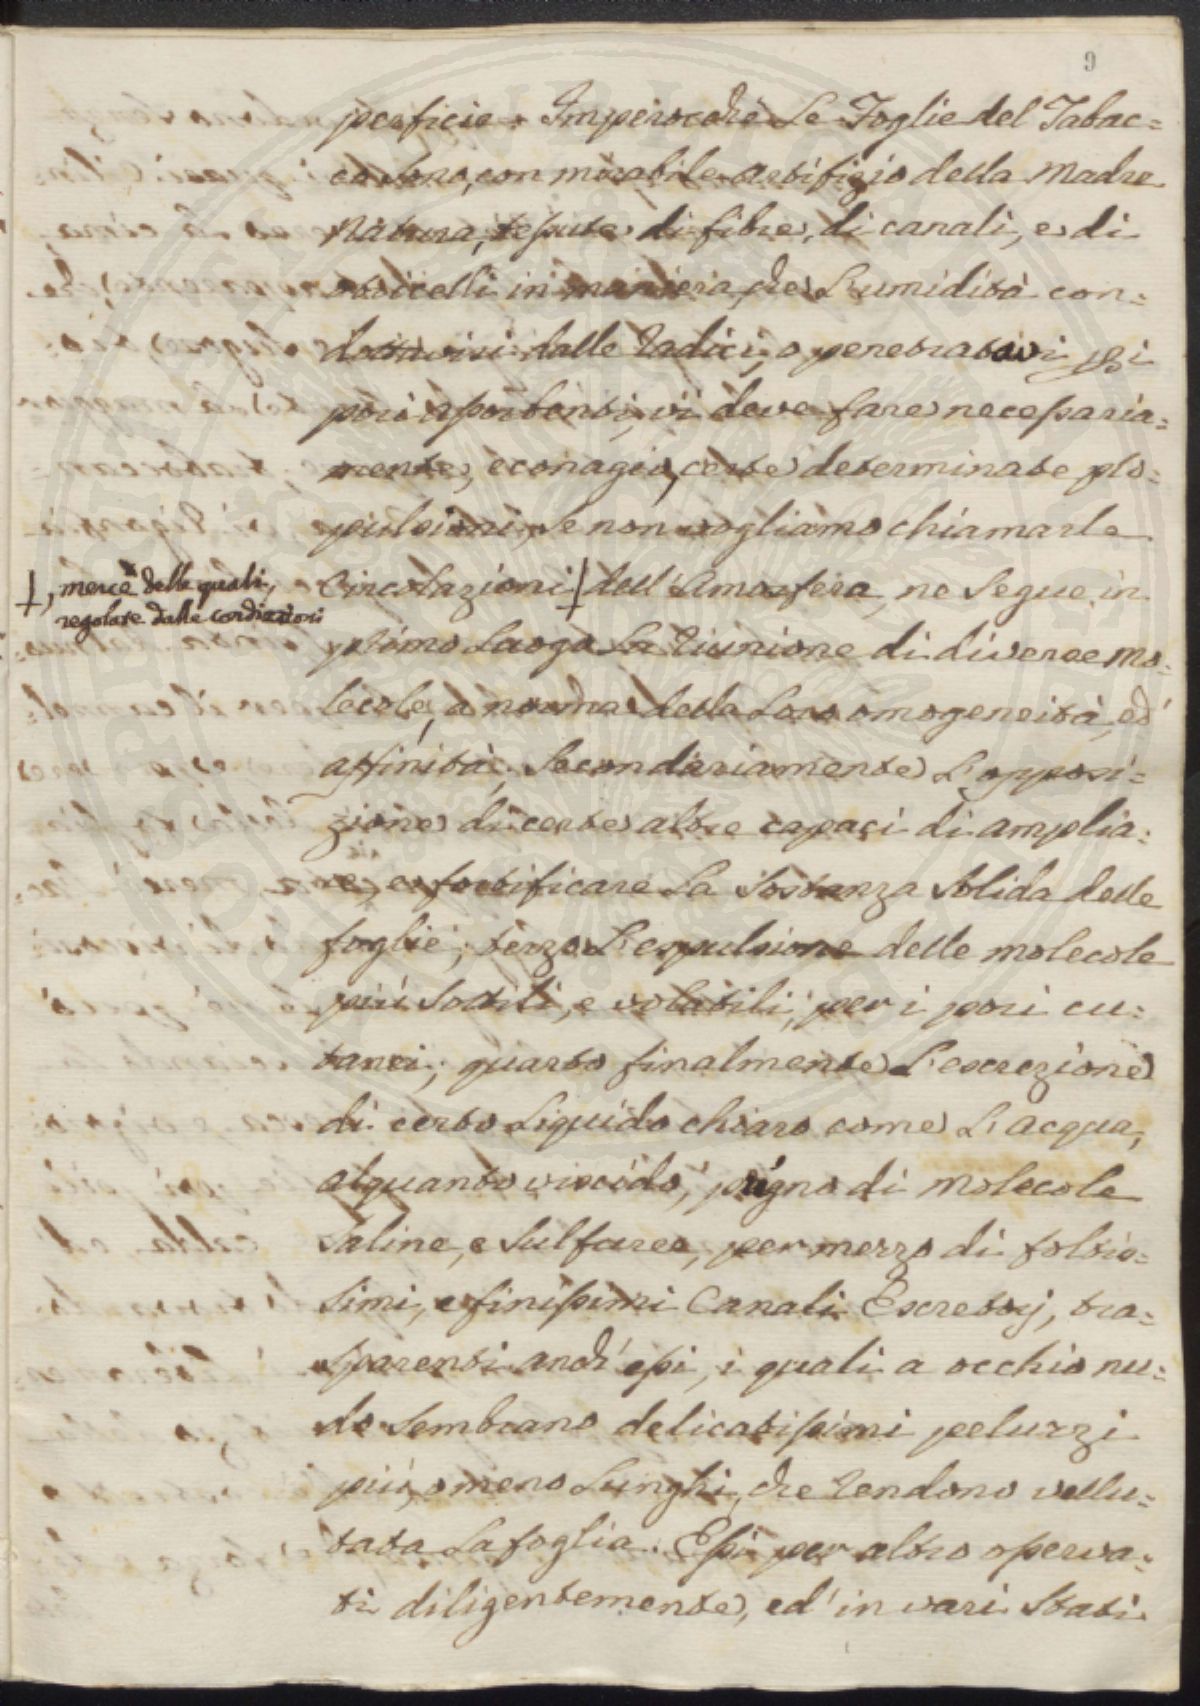 9
perficie. Imperocchè le Foglie del Tabac=
co sono, con mirabile artifizio della Madre
Natura, tessute di fibre, di canali, e di
otricelli in maniera, che l'umidità con=
dottavisi dalle Radici, o penetratavi pei
pori assorbenti, vi deve fare necessaria=
mente, e con agio, certe determinate pro=
pulsioni, se non vogliamo chiamarle
Circolazioni † dell'Atmosfera, ne segue in
†, mercè delle quali,
regolate dalle condizioni
primo luogo la riunione di diverse mo=
lecole, a norma della loro omogeneità, ed
affinità; secondariamente l'apposi=
zione di certe altre capaci di amplia=
re, e fortificare la sostanza solida delle
foglie; terzo l'espulsione delle molecole
più sottili, e volatili, per i pori cu=
tanei; quarto finalmente l'escrezione
di certo liquido chiaro come l'acqua,
alquanto viscido, pregno di molecole
saline, e sulfuree, per mezzo di foltis=
simi, e finissimi Canali Escretorj, tra=
sparenti anch'essi, i quali a occhio nu=
do sembrano delicatissimi peluzzi
più, o meno lunghi, che rendono vellu=
tata la foglia. Essi per altro osserva=
ti diligentemente, ed in vari stati